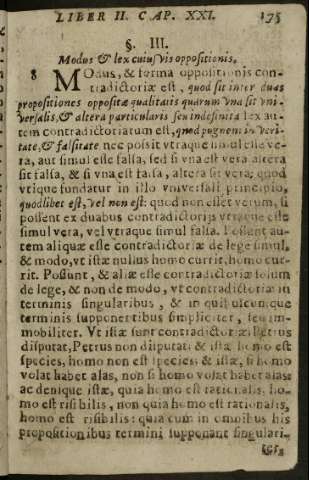 LIBER II. CAP. XXI. 175
§. III.
Modus & lex cuiusvis oppositionis.
8 MOdus, & forma oppositionis con-
tradictoriæ est, quod sit inter duas
propositiones oppositæ qualitatis quarum vna sit vni-
versalis, & altera particularis seu indefinita lex au-
tem contradictoriarum est, quod pugnent in veri-
tate, & falsitate nec possit vtraque simul esse ve-
ra, aut simul esse falsa, sed si vna est vera altera
sit falsa, & si vna est falsa, altera sit vera; quod
vtique fundatur in illo vniversali principio,
quodlibet est, vel non est: quod non esset verum, si
possent ex duabus contradictorijs vtraque esse
simul vera, vel vtraque simul falsa. Possent au-
tem aliquæ esse contradictoriæ de lege simul,
& modo, vt istæ nullus homo currit, homo cur-
rit. Possunt, & aliæ esse contradictoriæ solum
de lege, & non de modo, vt contradictoriæ in
terminis singularibus, & in quibuscunque
terminis supponentibus simpliciter, seu im-
mobiliter. Vt istæ sunt contradictoriæ Petrus
disputat, Petrus non disputat: & istæ homo est
species, homo non est species: & istæ, si homo
volat habet alas, non si homo volat habet alas:
ac denique istæ, quia homo est rationalis, ho-
mo est risibilis, non quia homo est rationalis,
homo est risibilis: quia cum in omnibus his
propositionibus termini supponant singulari-